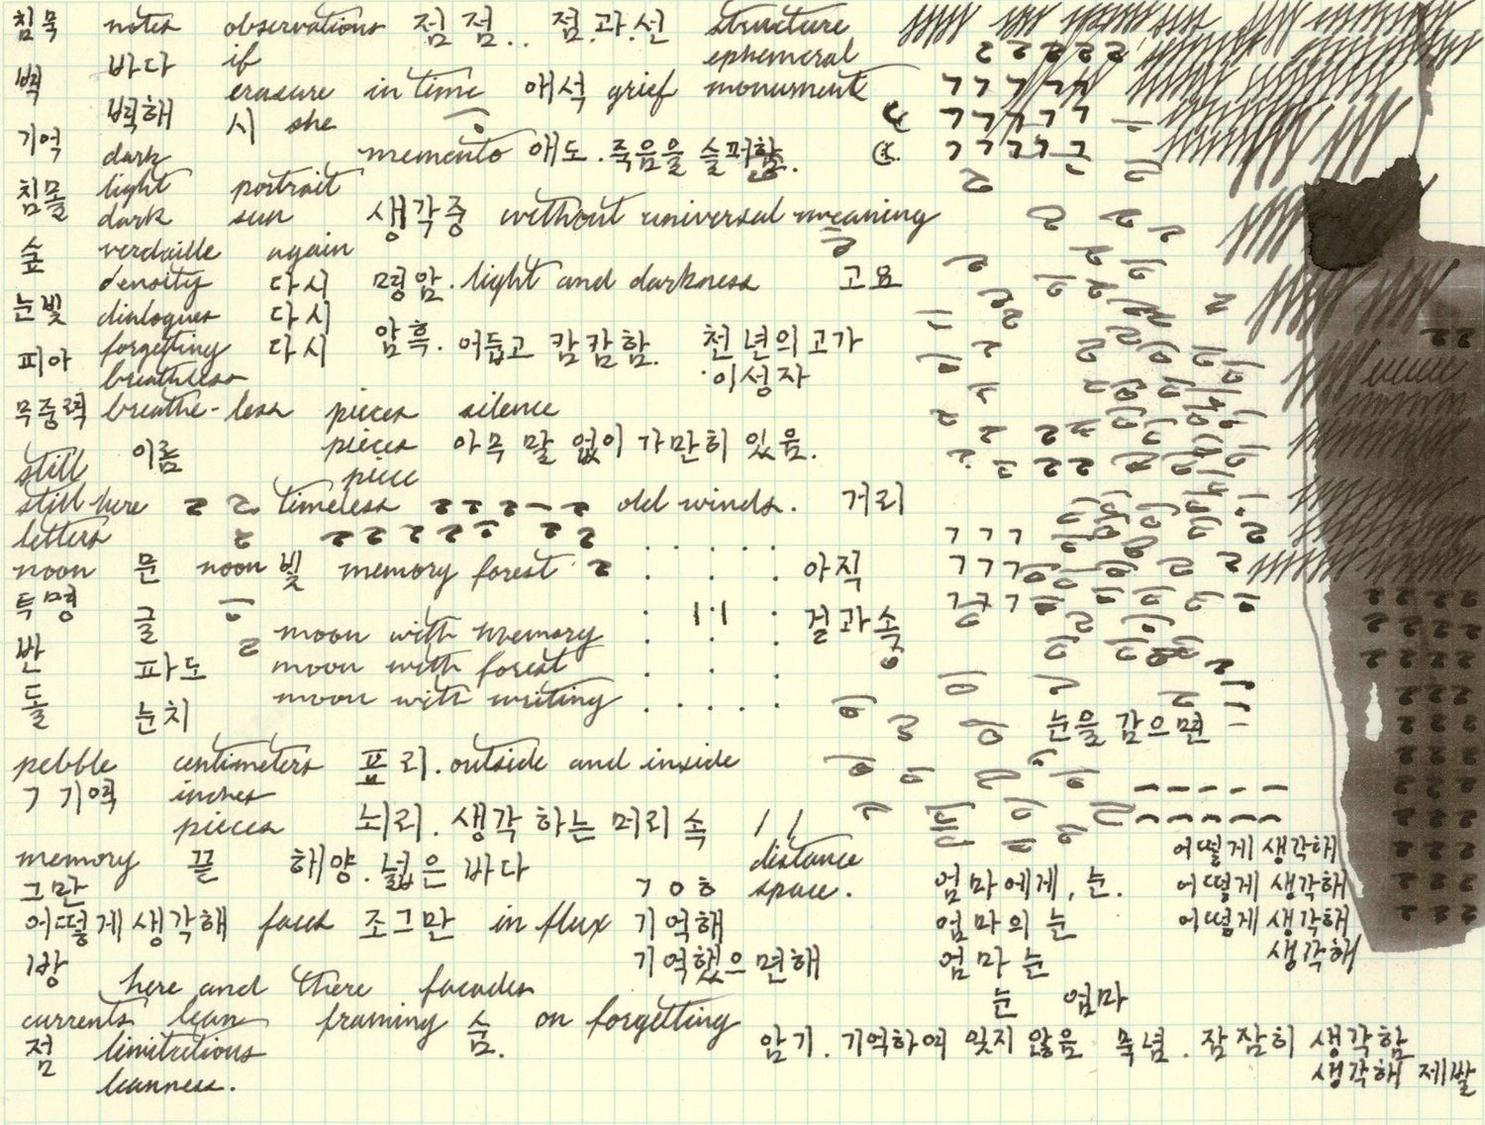 침묵 notes observations 점 점.. 점.과.선 structure
바다 if ephemeral
벽 erasure in time 애석 grief monument
벽해 시 she
기억 dark memento 애도.죽음을 슬퍼함.
침몰 light portrait
dark sun 생각중 without universal meaning
숲 verdaille again
density 다시 명암.light and darkness 고요
눈빛 dialogues 다시
forgetting 다시 암흑.어둡고 캄캄함. 천 년의 고가
피아 breathless 이성자
무중력 breathe-less pieces silence
이름 pieces 아무 말 없이 가만히 있음.
still piece
still here ㄹ ㄹ timeless ㄹㄹㄹ old winds. 거리
letters ㄹ ㄹㄹㄹㄹ ㄹㄹ
noon 문 noon빛 memory forest ㄹ 아직
투명 글 걸과속
moon with memory
반 파도 moon with forest
돌 눈치 moon with writing
눈을 감으면
pebble centimeters 표리.outside and inside
ㄱ 기억 inches
pieces 뇌리.생각하는 머리 속
memory 끝 해양.넓은 바다 distance 어떻게 생각해
그만 ㄱㅇㅎ space. 엄마에게,눈. 어떻게 생각해
어떻게 생각해 faces 조그만 in flux 기억해 엄마의 눈 어떻게 생각해
방 기억했으면해 엄마 눈 생각해
here and there facades 눈 엄마
currents lean framing 숨. on forgetting
점 limitations 암기.기억하여 잊지 않음 묵념.잠잠히 생각함
leanness. 생각해 제발